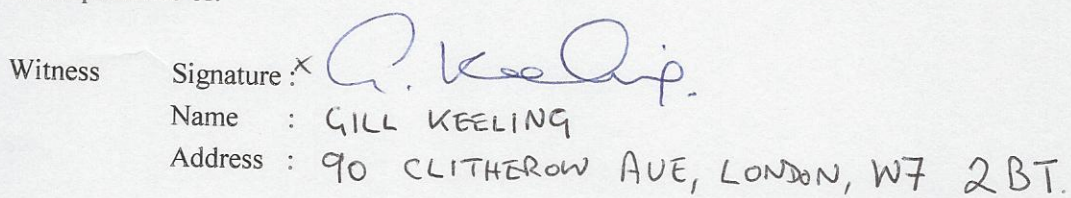 Witness Signature :x G. Keeling.
Name : GILL KEELING
Address : 90 CLITHEROW AVE, LONDON, W7 2BT.